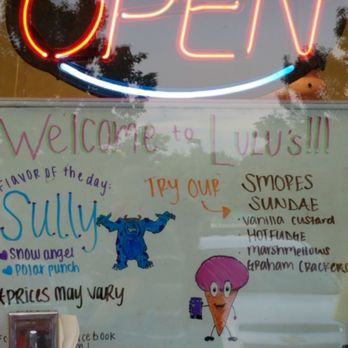 OPEN
Welcome to Lulu's!!!
Flavor of the day:
Sully
Snow angel
Polar punch
*Prices may vary
Try our
Smores
Sundae
· Vanilla custard
· Hot fudge
· Marshmellows
· Graham crackers